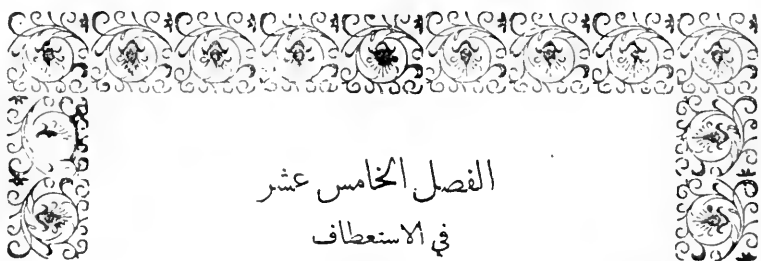 الفصل الخامس عشر
في الاستعطاف